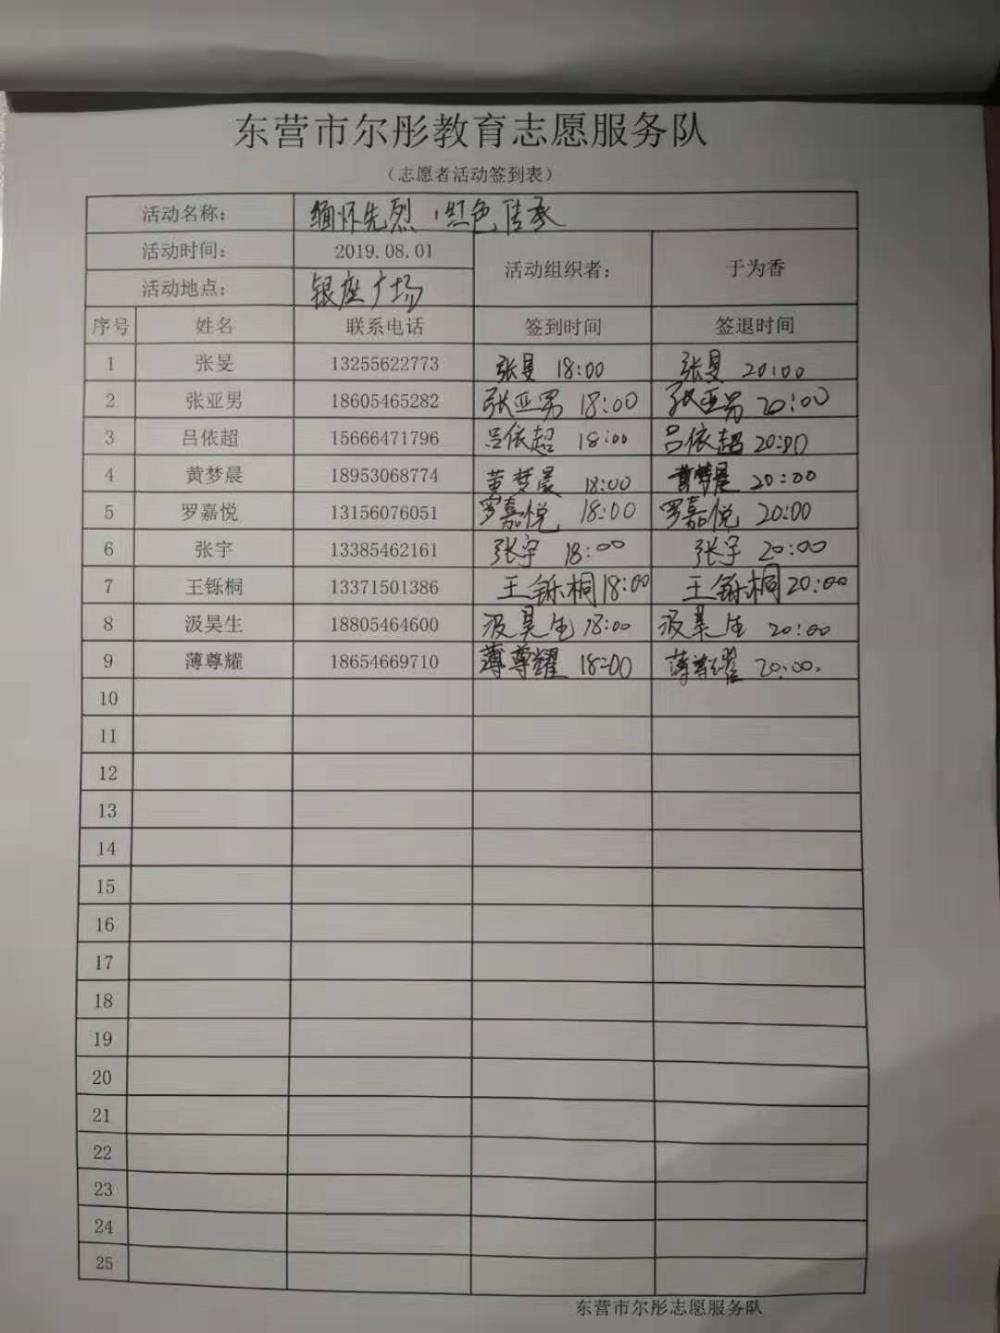 东营市尔彤教育志愿服务队
（志愿者活动签到表）
活动名称： 缅怀先烈，红色传承
活动时间： 2019.08.01 活动组织者： 于为香
活动地点： 银座广场
序号 姓名 联系电话 签到时间 签退时间
1 张旻 13255622773 张旻 18:00 张旻 20:00
2 张亚男 18605465282 张亚男 18:00 张亚男 20:00
3 吕依超 15666471796 吕依超 18:00 吕依超 20:00
4 黄梦晨 18953068774 黄梦晨 18:00 黄梦晨 20:00
5 罗嘉悦 13156076051 罗嘉悦 18:00 罗嘉悦 20:00
6 张宇 13385462161 张宇 18:00 张宇 20:00
7 王铄桐 13371501386 王铄桐 18:00 王铄桐 20:00
8 汲昊生 18805464600 汲昊生 18:00 汲昊生 20:00
9 薄尊耀 18654669710 薄尊耀 18:00 薄尊耀 20:00.
10
11
12
13
14
15
16
17
18
19
20
21
22
23
24
25
东营市尔彤志愿服务队